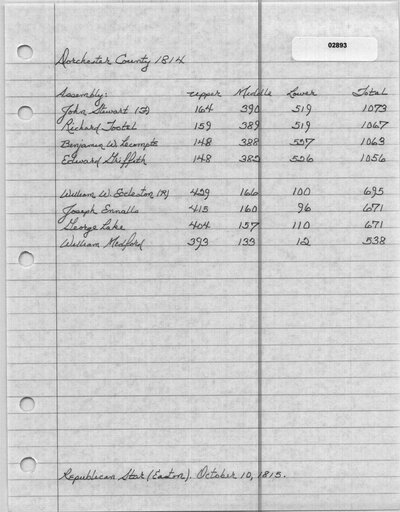 02893
Dorchester County 1814
Assembly: Upper Middle Lower Total
John Stewart (F) 164 390 519 1073
Richard Tootel 159 389 519 1067
Benjamin W. Lecompte 148 388 527 1063
Edward Griffith 148 382 526 1056
William W. Eccleston (R) 429 166 100 695
Joseph Ennalls 415 160 96 671
George Lake 404 157 110 671
William Medford 393 133 12 538
Republican Star (Easton). October 10, 1815.